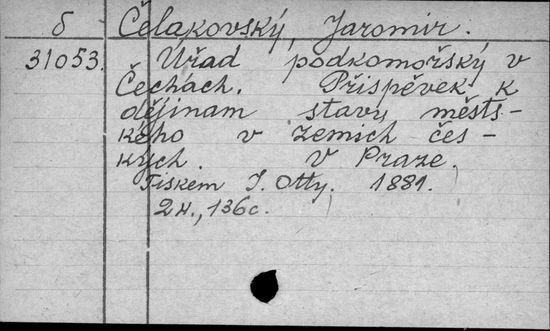 б Čelakovský, Jaromir.
31053. Úřad podkomořský v
Čechách. Přispěvek k
dějinam stavu městs-
kého v zemich čes-
kých. V Praze.
Tiskem J. Otty. 1881.
2 н., 136 c.